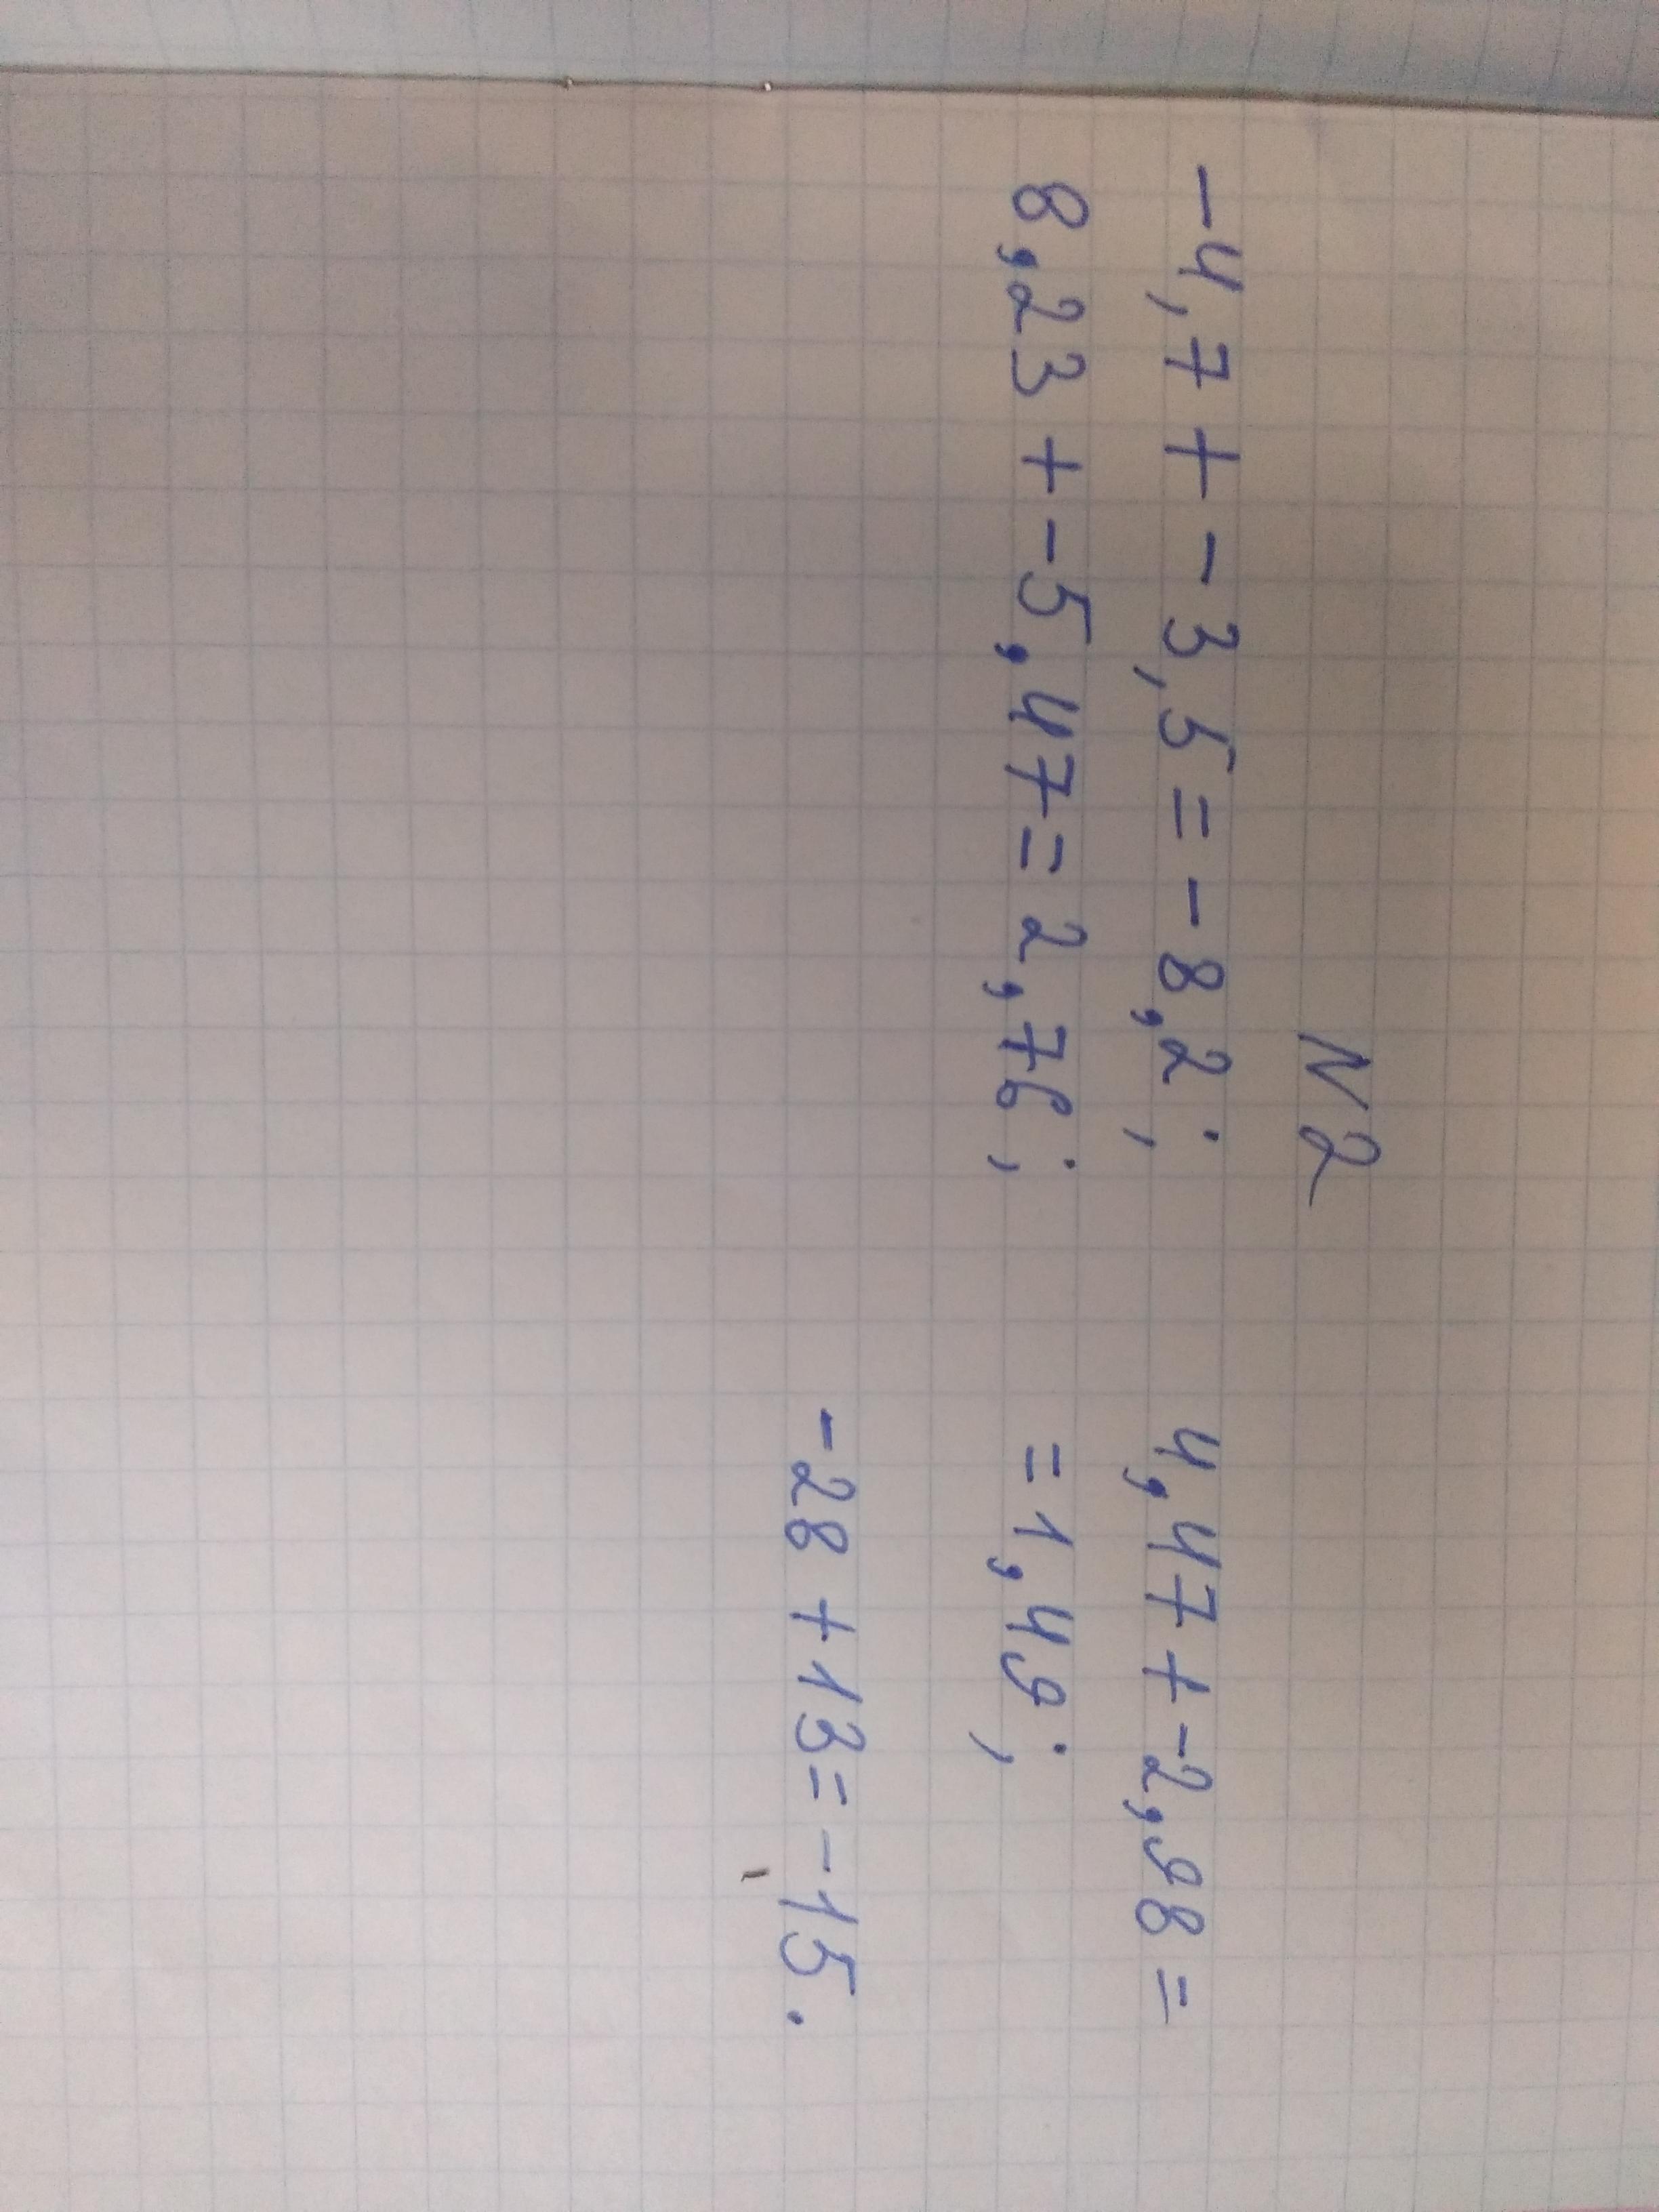 N2
-4,7 + -3,5 = -8,2;
8,23 + -5,47 = 2,76;
4,47 + -2,98 =
= 1,49;
-28 + 13 = -15.